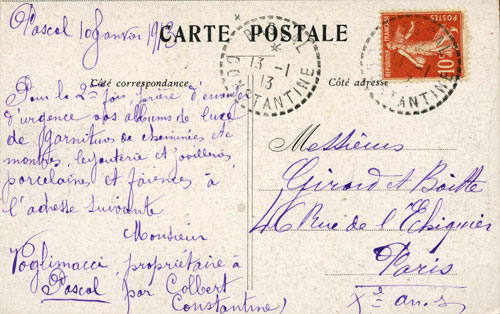 Pascal 10 Janvier 1913
CARTE POSTALE
PASCAL
13 -1
13
CONSTANTINE
RÉPUBLIQUE FRANÇAISE
POSTES
10
Côté correspondance
Côté adresse
Pour la 2e fois prière d'envoyer
d'urgence vos albums de luxe
de garnitures de cheminées et de
montres, bijouterie et joailleries
porcelaines et faïences à
l'adresse suivante
Monsieur
Voglimacci, propriétaire à
Pascal par Colbert
Constantine)
Messieurs
Girard et Boitte
46 Rue de l'Echiquier
Paris
Xe arr.